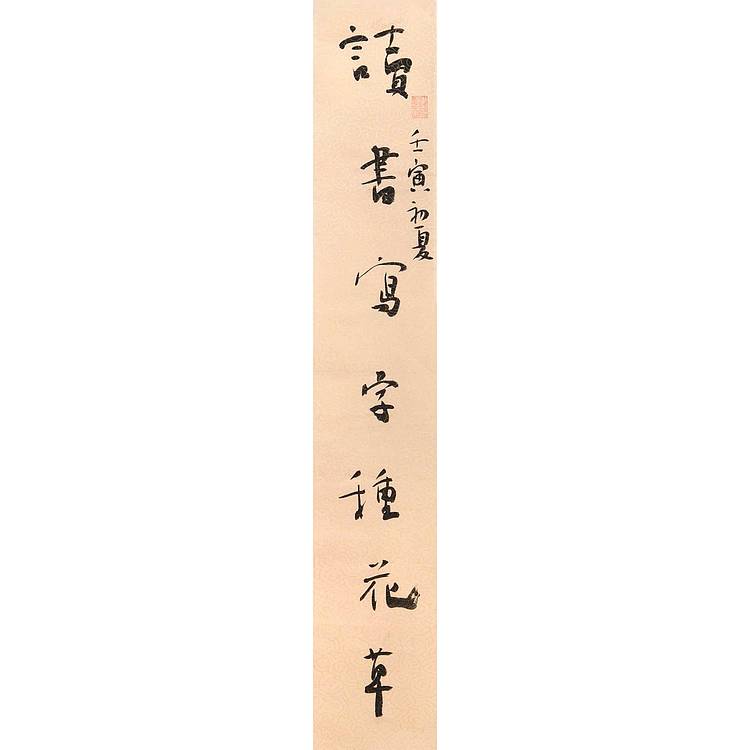 讀書寫字種花草
壬寅初夏